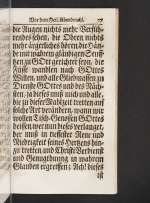 Vor dem Heil. Abendmahl. 77
die Augen nichts mehr Verführ-
rendes sehen, die Ohren nichts
mehr ärgerliches hören, die Hän-
de mit wahren gläubigen Seuff-
zen zu GOtt gerichtet seyn, die
Füsse wandlen nach GOttes
Willen, und alle Gliedmassen zu
Dienste GOttes und des Näch-
sten, ja dieses muß mich und alle,
die zu dieser Mahlzeit tretten auf
solche Art verändern, wann wir
wollen Tisch-Genossen GOttes
heissen, wer nun dieses verlanget,
der muß in tieffester Reu und
Niedrigkeit seines Hertzens hin-
zu tretten und Christi Verdienst
und Genugthuung in wahrem
Glauben ergreiffen: Ach! dieses
ist